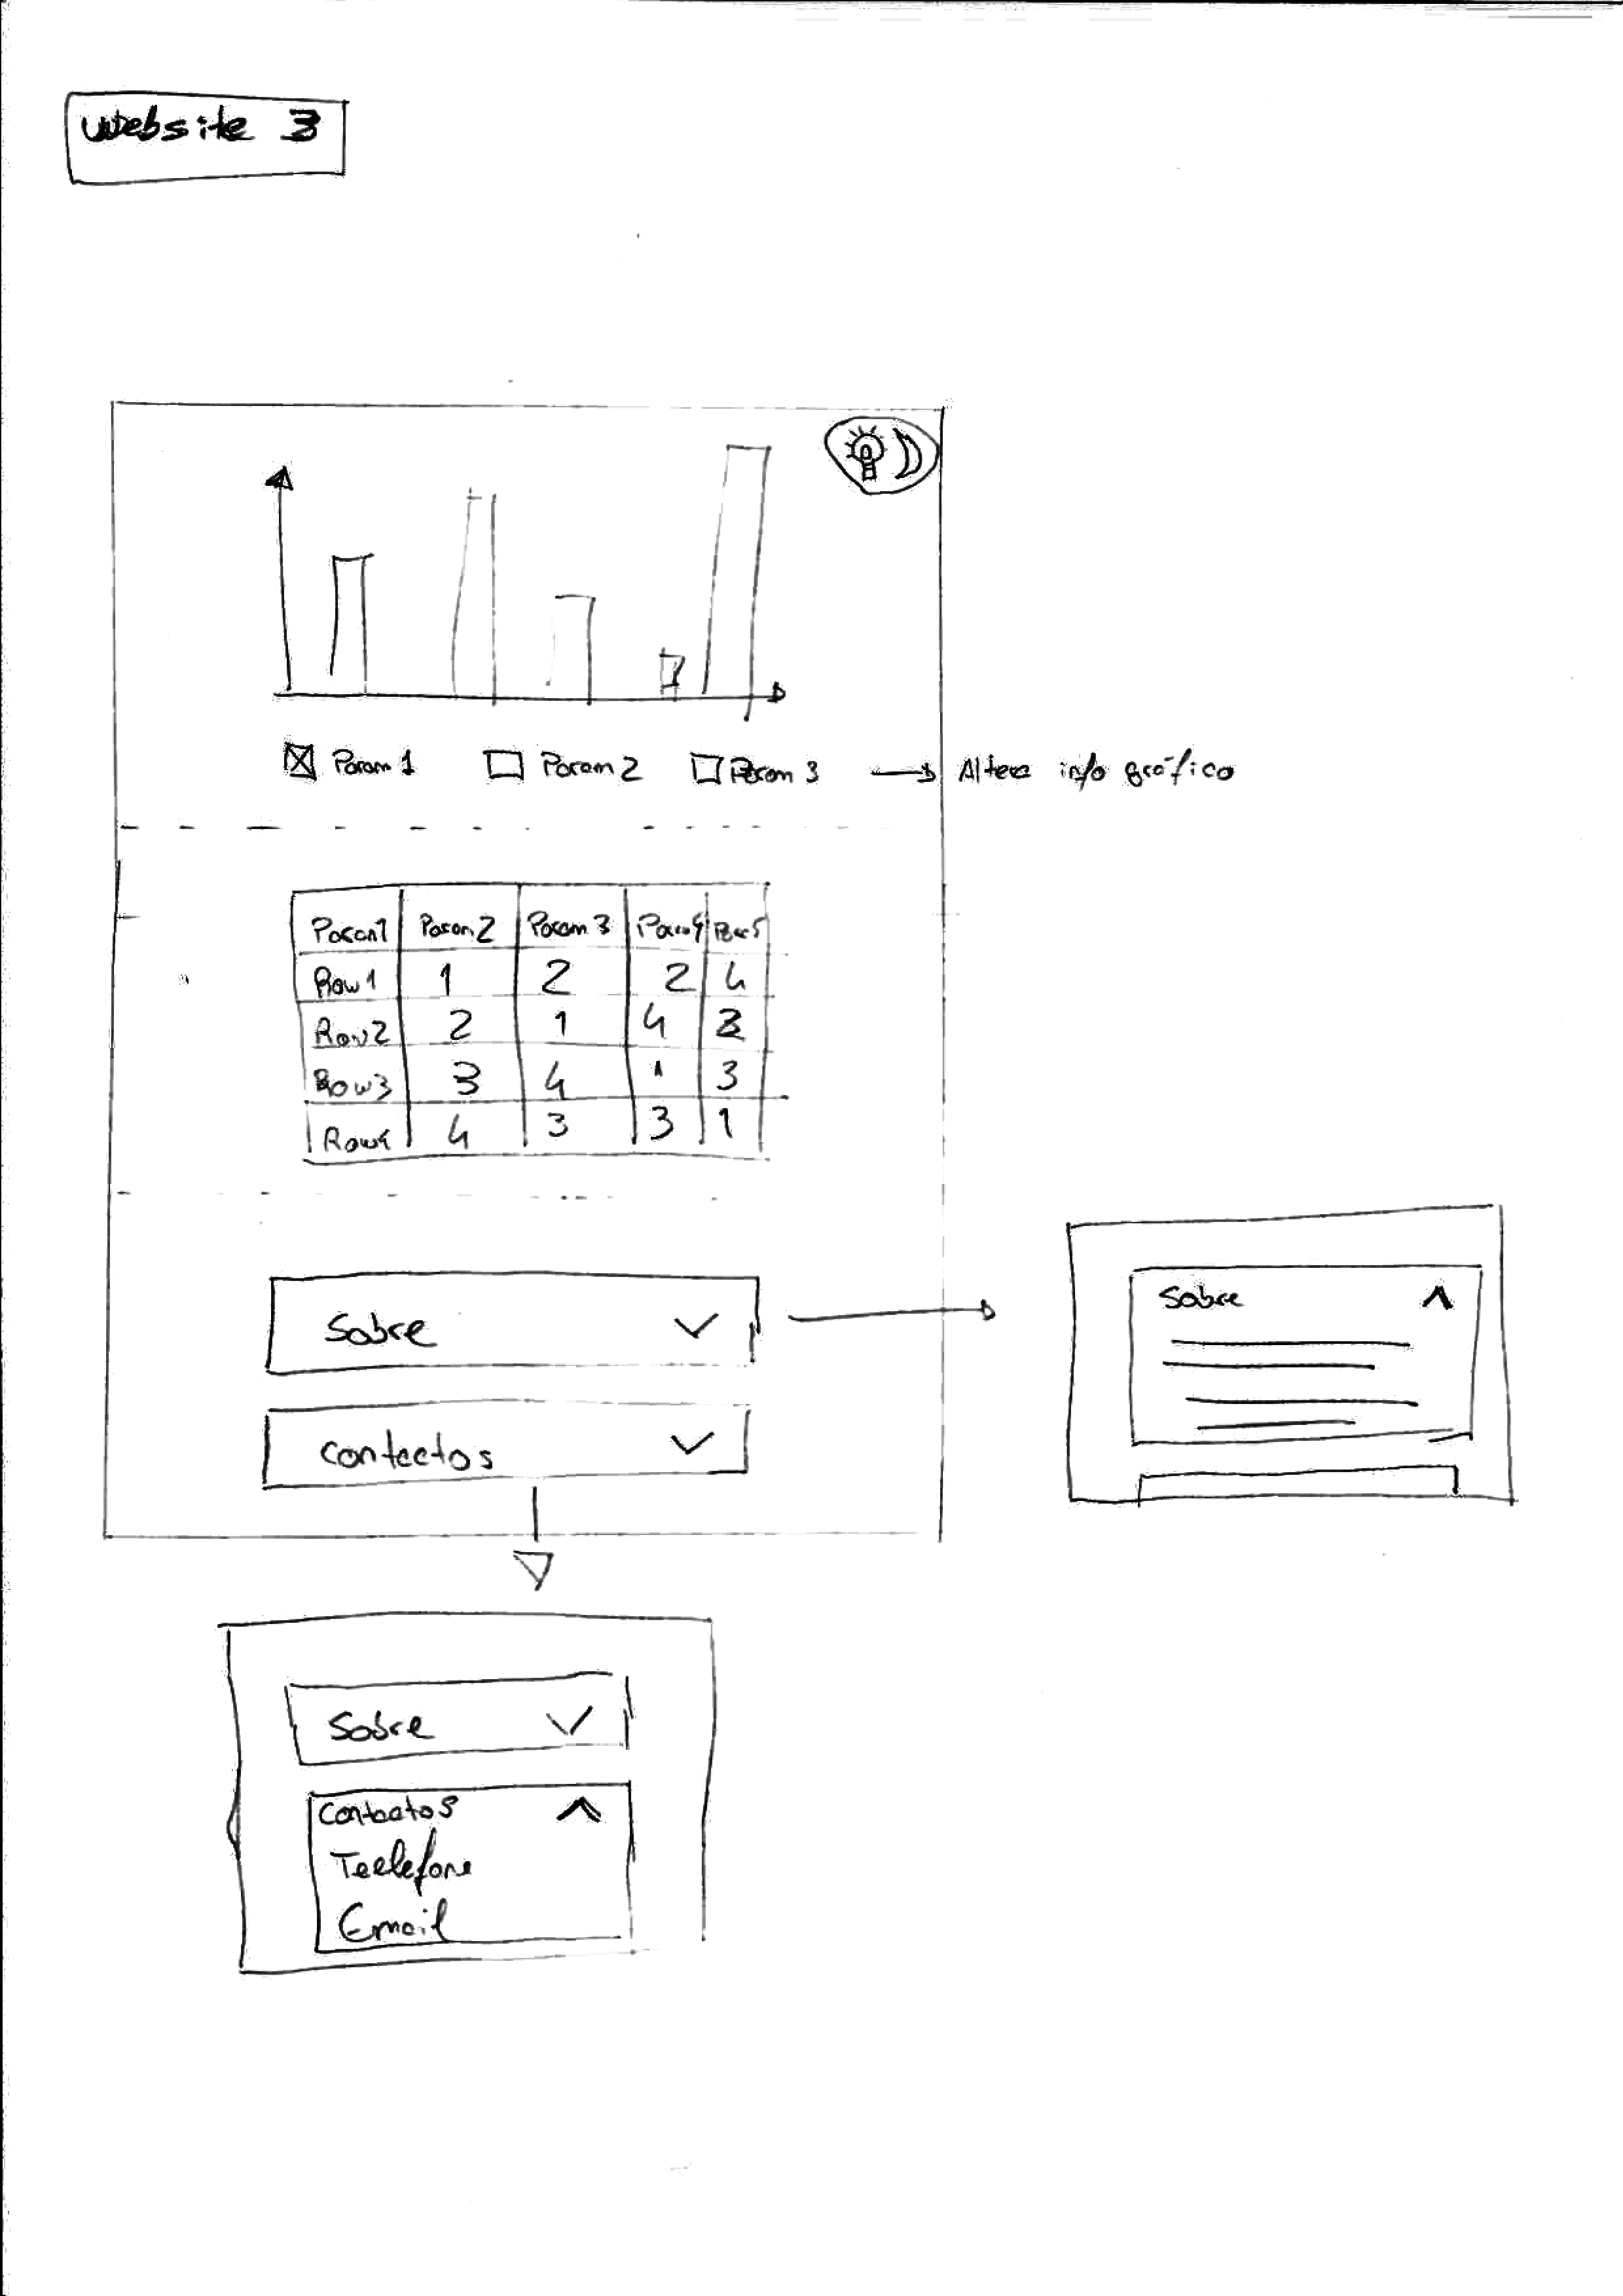 Website 3
Param 1 Param 2 Param 3 → Altera info gráfico
Param1 Param 2 Param 3 Param4 Par5
Row1 1 2 2 4
Row2 2 1 4 2
Row3 3 4 1 3
Row4 4 3 3 1
Sobre
Contactos
Sobre
Sobre
Contactos
Teelefone
Email